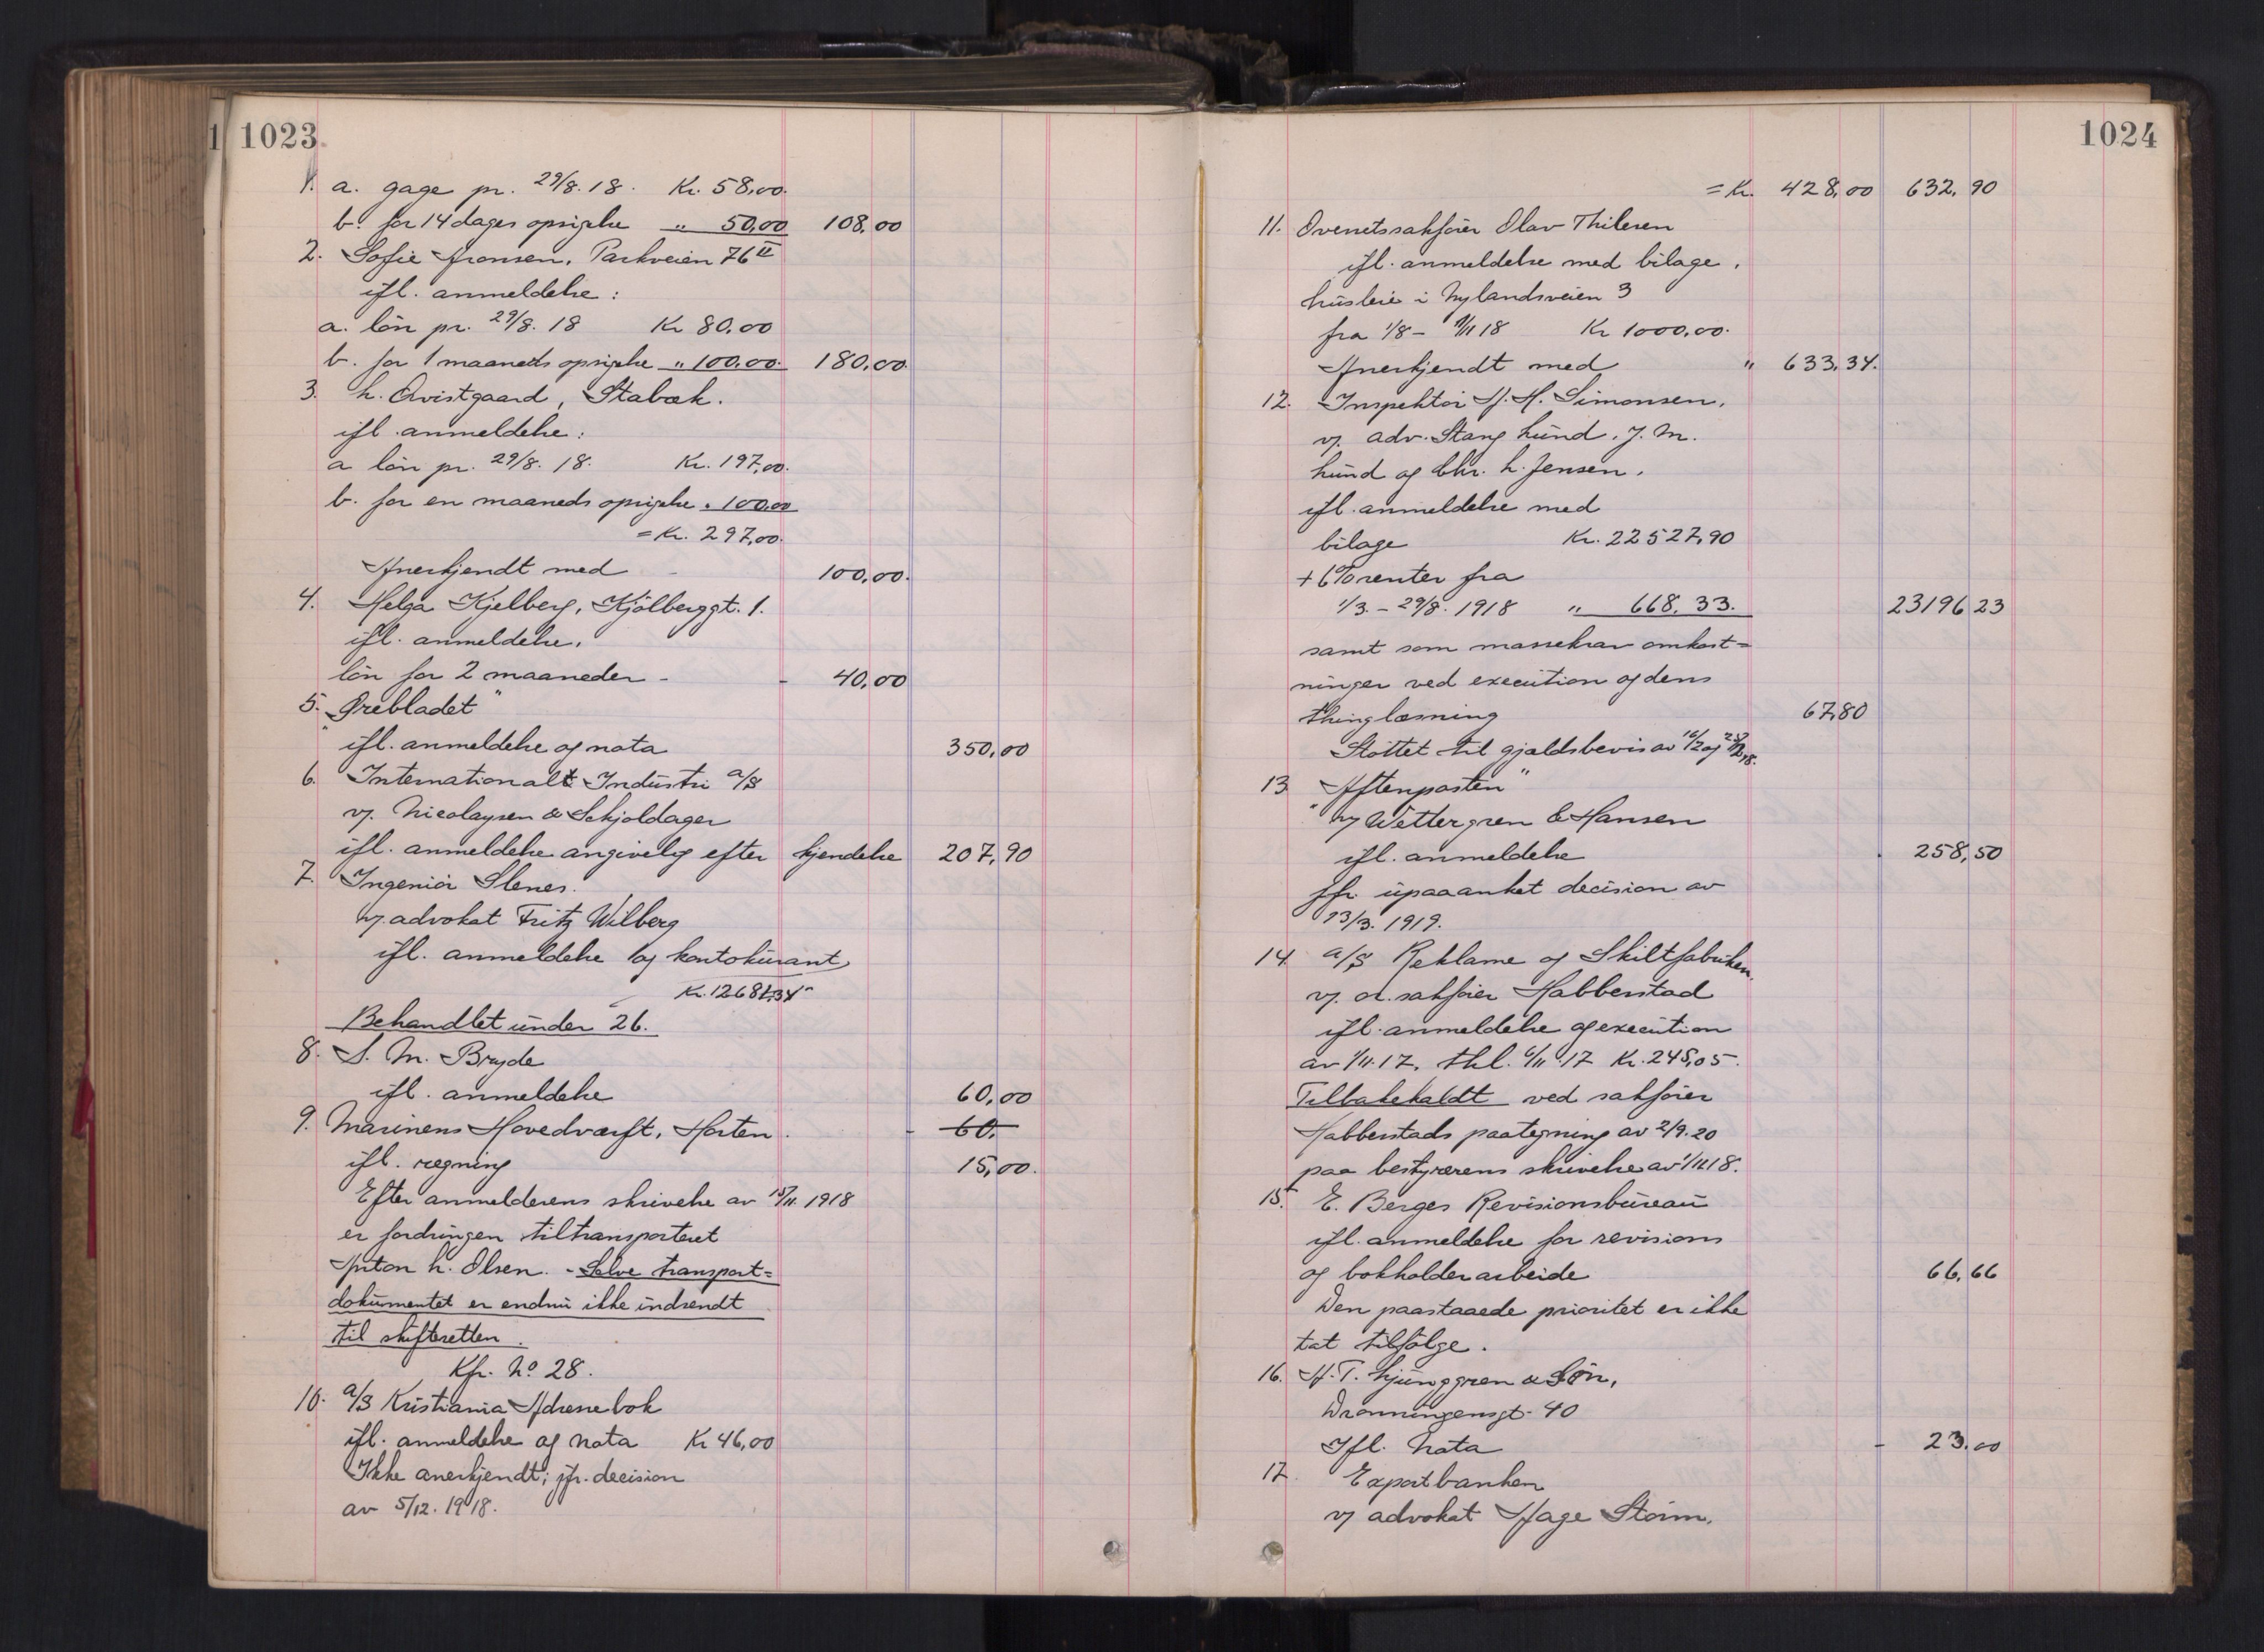 1 1023
1. a. gage pr. 29/8. 18. Kr. 58,00.
b. for 14 dages opsigelse " 50,00 108,00
2. Sofie Aronsen, Parkveien 76 II
ifl. anmeldelse:
a. lön pr. 29/8. 18 Kr 80,00
b. for 1 maaneds opsigelse " 100,00. 180,00.
3. L. Qvistgaard, Stabæk.
ifl. anmeldelse:
a lön pr. 29/8. 18. Kr. 197,00.
b. for en maaneds opsigelse " 100,00
= Kr. 297,00.
Anerkjendt med - 100,00.
4. Helga Kjelberg, Kjölberggt. 1.
ifl. anmeldelse.
lön for 2 maaneder - - 40,00
5. "Ørebladet"
ifl. anmeldelse og nota 350,00
6. Internationalt Industri A/S
v/ Nicolaysen & Skjoldager
ifl. anmeldelse angivelig efter kjendelse 207,90
7. Ingeniör Slenes.
v/ advokat Fritz Wilberg
ifl. anmeldelse og kontokurant
Behandlet under 26.
8. S. M. Bryde
ifl. anmeldelse 60,00
9. Marinens Hovedværft, Horten. - 60.
ifl. regning 15,00.
Efter anmelderens skrivelse av 15/11. 1918
er fordringen tiltransporteret
Anton L. Olsen. - Selve transport=
dokumentet er endnu ikke indsendt
til skifteretten.
Kfr. No 28.
10. A/S Kristiania Adressebok
ifl. anmeldelse og nota Kr 46,00
Ikke anerkjendt; jfr. decision
av 5/12. 1918.
1024
= Kr. 428,00 632,90
11. Overretssakförer Olav Thilesen
ifl. anmeldelse med bilage,
husleie i Nylandsveien 3
fra 1/8 - 18 Kr 1000,00.
Anerkjendt med " 633,34.
12. Inspektör A. H. Simonsen,
v/ adv. Stang Lund, J. M.
Lund og Chr. L. Jensen,
ifl. anmeldelse med
bilage Kr. 22527,90
+ 6% renter fra
1/3. - 29/8. 1918 " 668,33. 23196 23
samt som massekrav omkost=
ninger ved execution og dens
thinglæsning 67,80
Stöttet til gjældsbevis av 16/2 og
13 "Aftenposten"
v/ Wettergren & Hansen
ifl. anmeldelse - 258,50
jfr. upaaanket decision av
13/3. 1919.
14 A/S Reklame og Skiltfabriken.
v/ o.r.sakförer Habberstad
ifl. anmeldelse og execution
av 1/11. 17, thl. 6/11. 17 Kr. 245,05.
Tilbakekaldt ved sakförer
Habberstads paategning av 2/9. 20
paa bestyrerens skrivelse av 1/11 18.
15. E. Berges Revisionsbureau
ifl. anmeldelse for revisions
og bokholderarbeide 66,66
Den paastaaede prioritet er ikke
tat tilfölge.
16. A. T. Ljunggren & Sön,
Dronningensgt. 40
Ifl. Nota - 23.00
17 Exportbanken
v/ advokat Aage Storm,